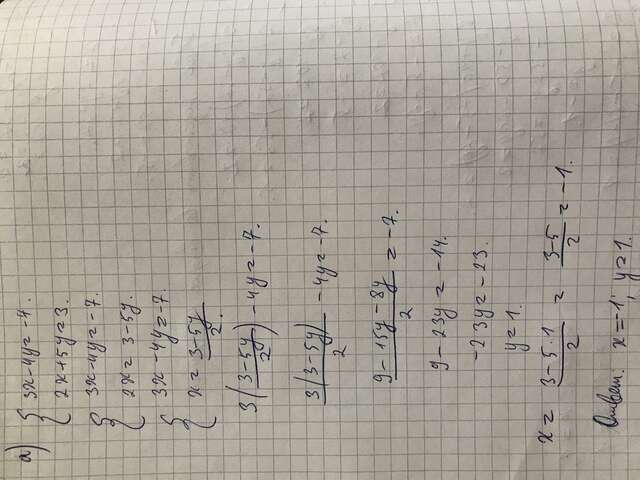 а) { 3x-4y=-7.
2x+5y=3.
{ 3x-4y=-7.
2x=3-5y.
{ 3x-4y=-7.
x=\frac{3-5y}{2}.
3(\frac{3-5y}{2})-4y=-7.
\frac{3(3-5y)}{2}-4y=-7.
\frac{9-15y-8y}{2}=-7.
9-23y=-14.
-23y=-23.
y=1.
x=\frac{3-5·1}{2}=\frac{3-5}{2}=-1.
Ответ: x=-1; y=1.